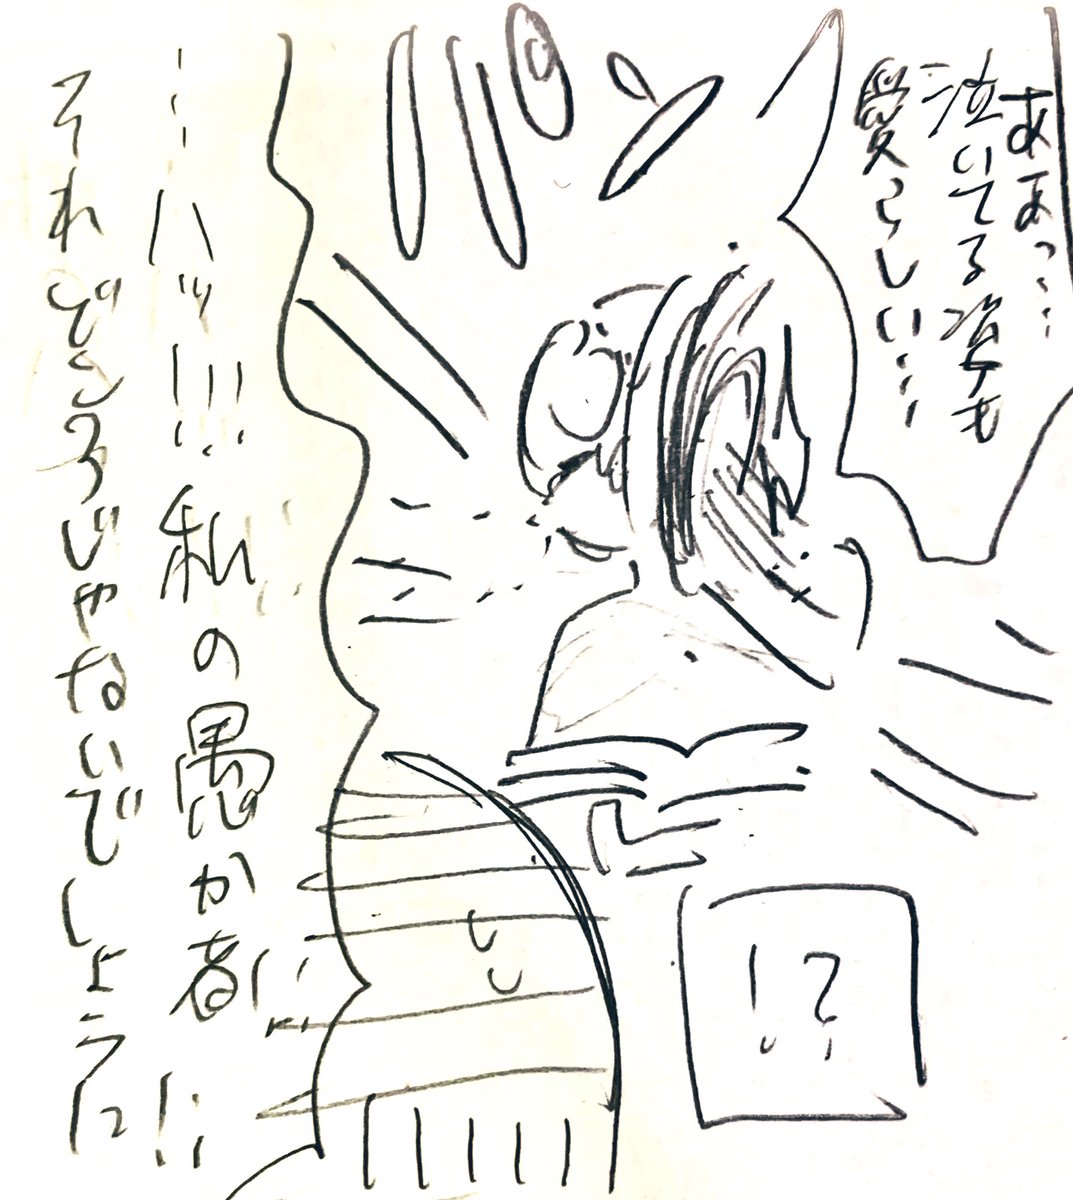 ああっ…
泣いてる姿も
愛らしい…
パン
…ハッ!!!私の愚か者!!
それどころじゃないでしょうに
!?